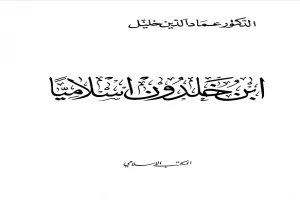 الدكتور عماد الدين خليل
ابن خلدون اسلاميًا
المكتب الإسلامي